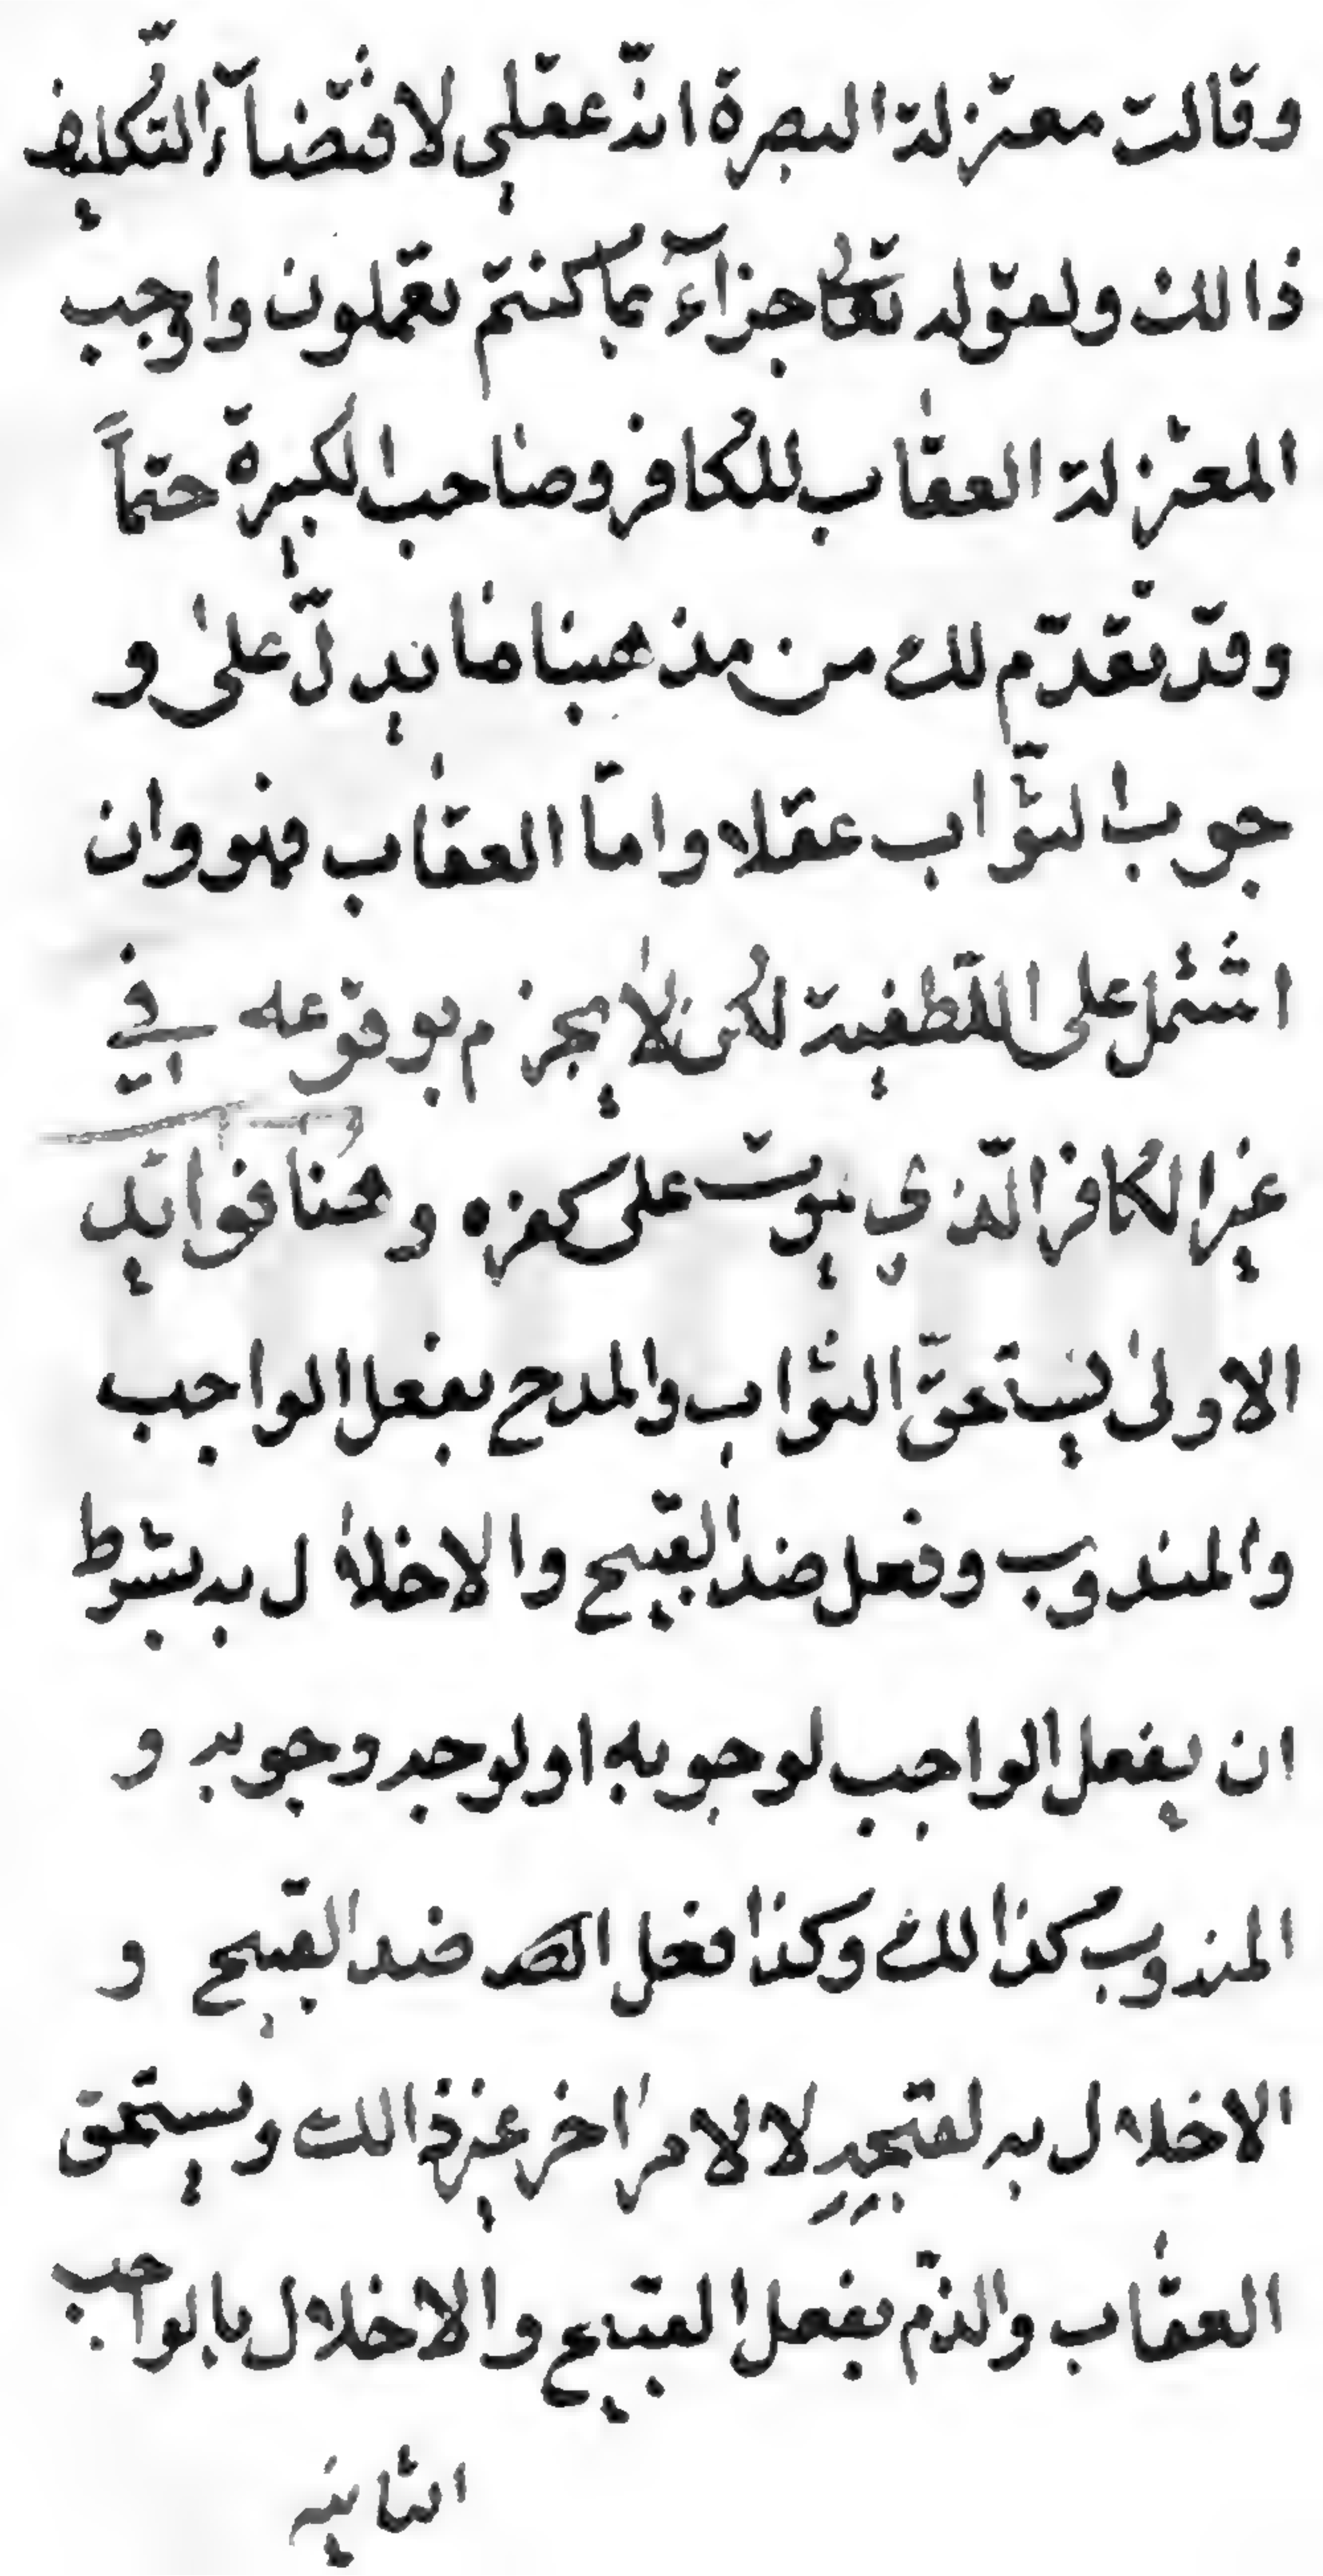 وقالت معتزلة البصرة انّه عقلي لاقتضآء التّكليف
ذالك ولقوله تعٰلى جزآء بما كنتم تعملون واوجب
المعتزلة العقاب للكافر وصاحب الكبيرة حتماً
وقد تقدّم لك من مذهبنا ما يدلّ على و
جوب الثّواب عقلا وامّا العقاب فهو وان
اشتمل على اللّطفية لكن لا يجزم بوقوعه في
غير الكافر الّذي يموت على كفره وهنا فوايد
الاولىٰ يستحقّ الثواب والمدح بفعل الواجب
والمندوب وفعل ضد القبيح والاخلال به بشرط
ان يفعل الواجب لوجوبه او لوجه وجوبه و
المندوب كذالك وكذا فعل ضد القبيح و
الاخلال به لقبحه لا لامر اخر غير ذالك ويستحق
العقاب والذّم بفعل القبيح والاخلال بالواجب
الثانيه